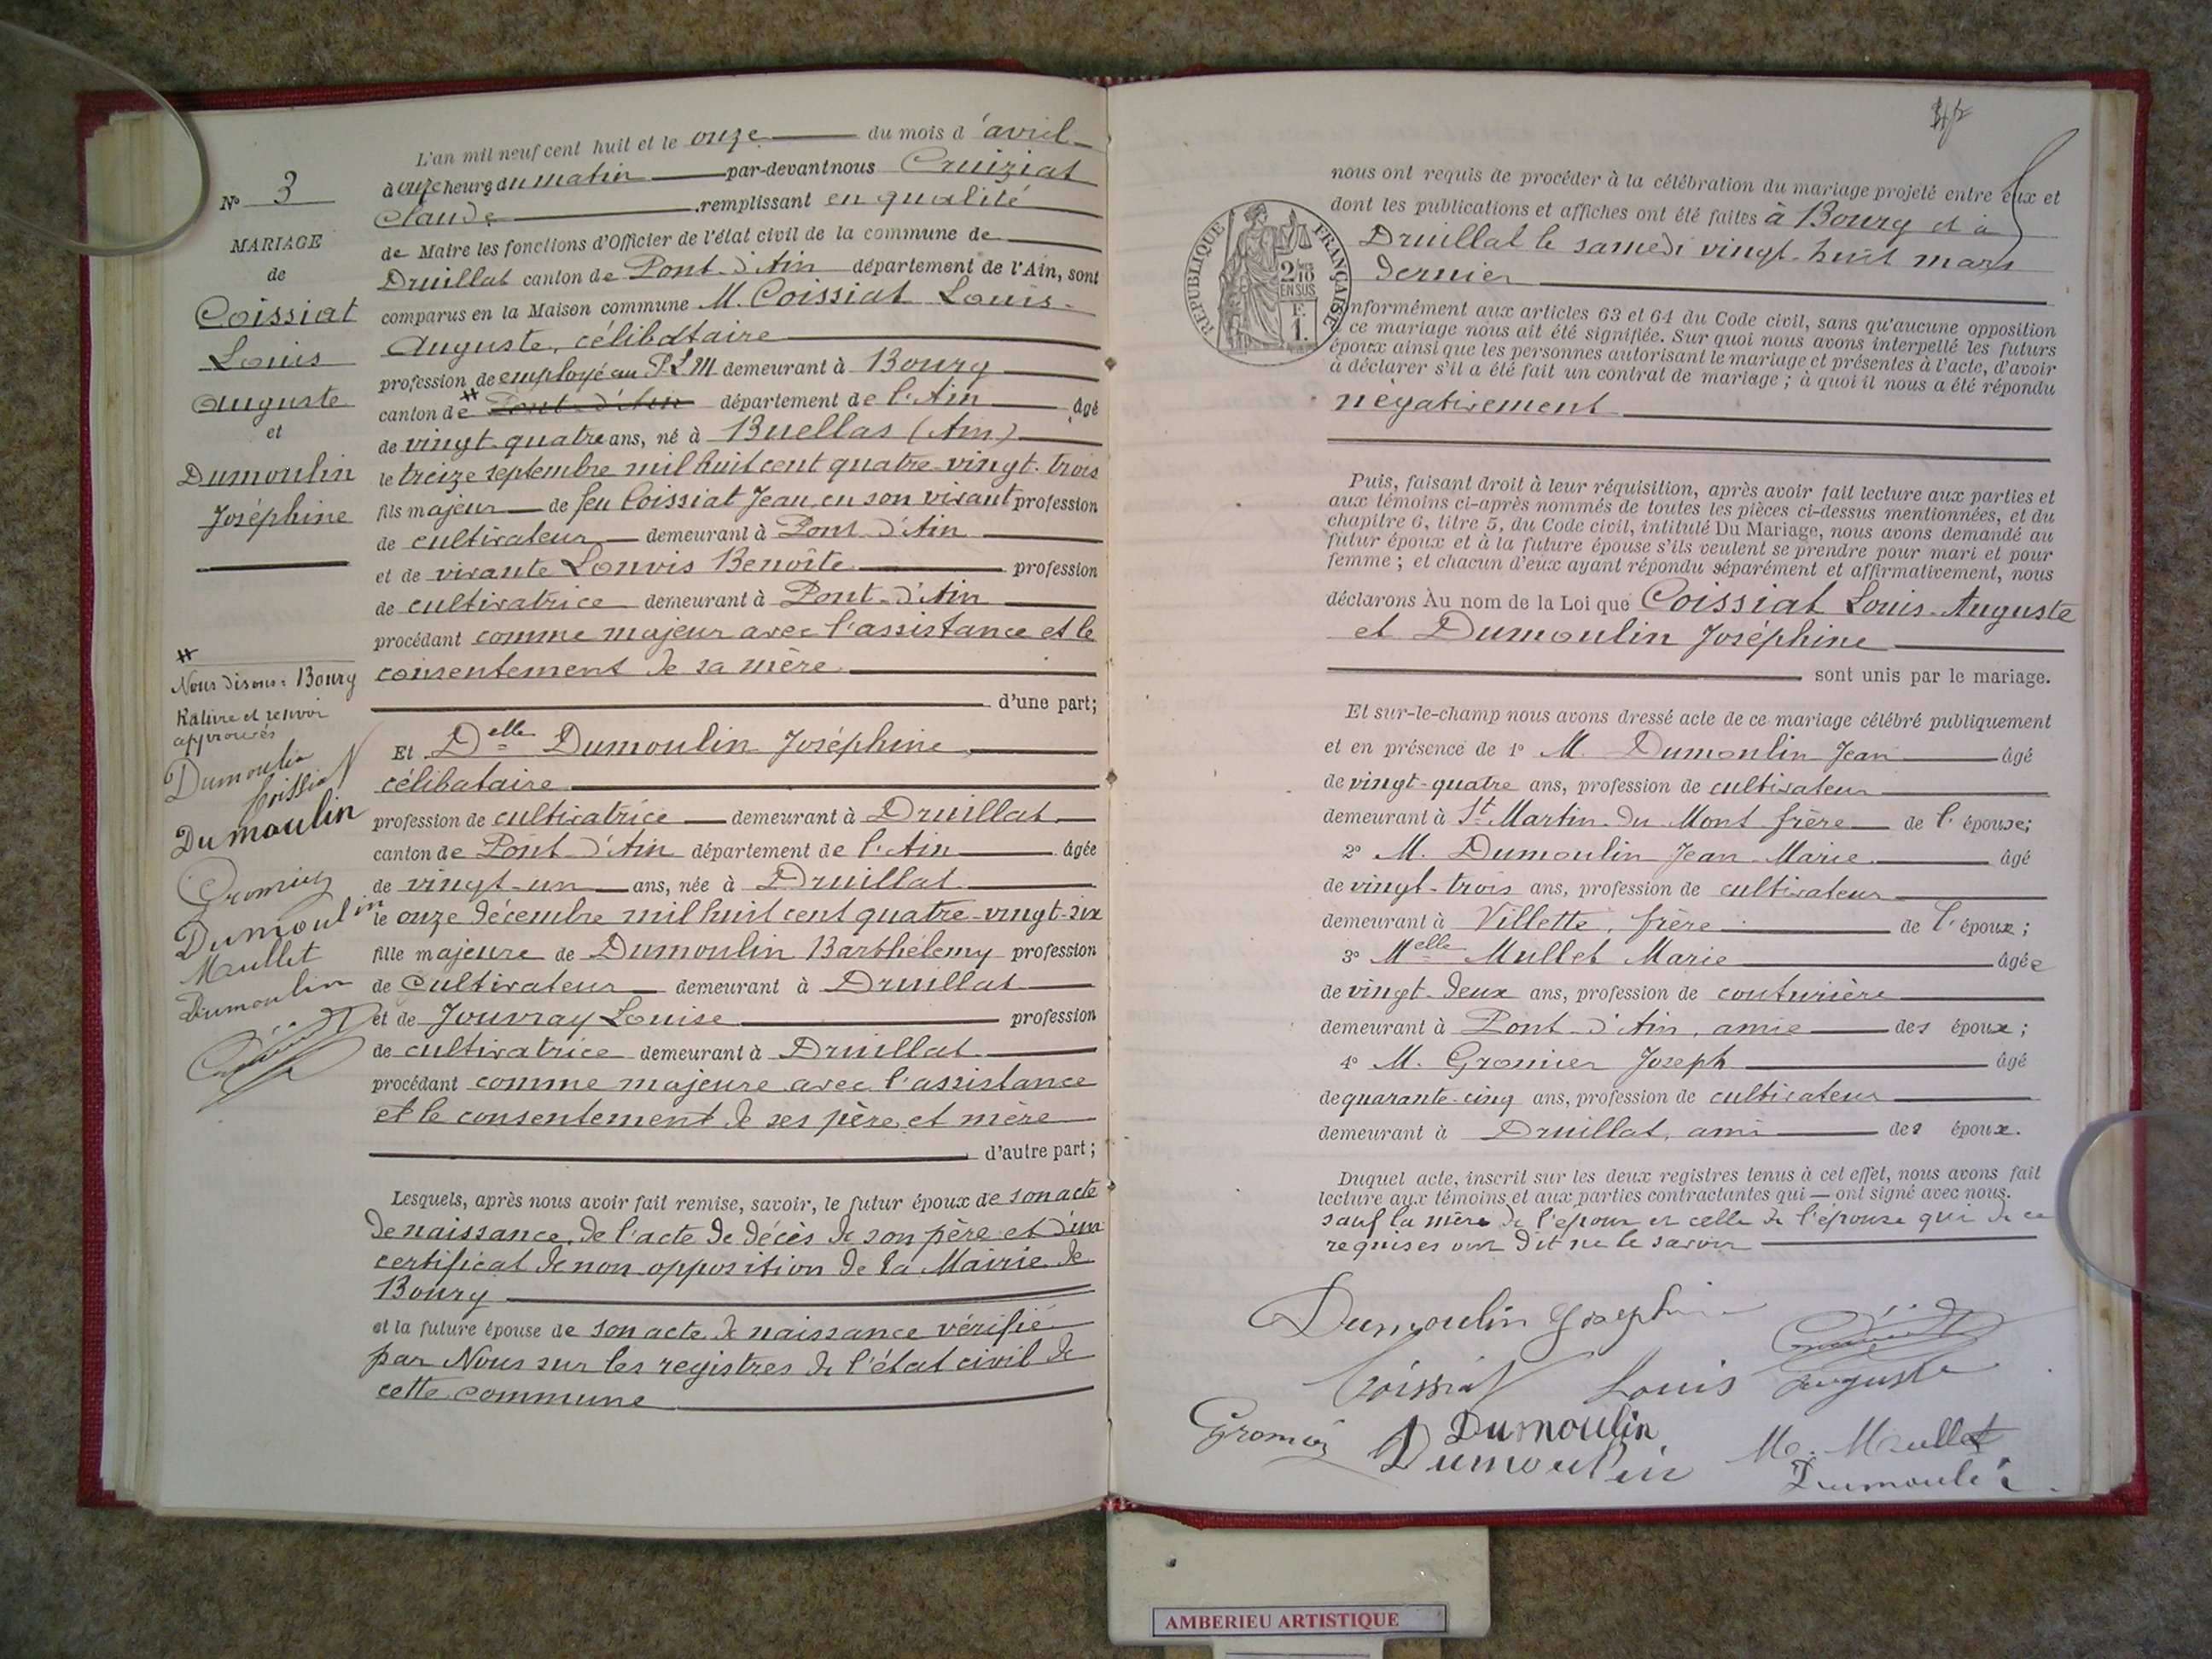 L'an mil neuf cent huit et le onze du mois d'avril
à onze heures du matin par-devant nous Cruiziat
Claude remplissant en qualité
de Maire les fonctions d'Officier de l'état civil de la commune de
Druillat canton de Pont-d'Ain département de l'Ain, sont
comparus en la Maison commune M. Coissiat Louis-
Auguste, célibataire
profession de employé au PLM demeurant à Bourg
canton de # Pont-d'Ain département de l'Ain âgé
de vingt-quatre ans, né à Buellas (Ain)
le treize septembre mil huit cent quatre-vingt-trois
fils majeur de feu Coissiat Jean, en son vivant profession
de cultivateur demeurant à Pont-d'Ain
et de vivante Louvis Benoîte profession
de cultivatrice demeurant à Pont-d'Ain
procédant comme majeur avec l'assistance et le
consentement de sa mère
d'une part;
Et Delle Dumoulin Joséphine
célibataire
profession de cultivatrice demeurant à Druillat
canton de Pont-d'Ain département de l'Ain âgée
de vingt-un ans, née à Druillat
le onze décembre mil huit cent quatre-vingt-six
fille majeure de Dumoulin Barthélemy profession
de Cultivateur demeurant à Druillat
et de Jouvray Louise profession
de cultivatrice demeurant à Druillat
procédant comme majeure avec l'assistance
et le consentement de ses père et mère
d'autre part;
Lesquels, après nous avoir fait remise, savoir, le futur époux de son acte
de naissance, de l'acte de décès de son père et d'un
certificat de non opposition de la Mairie de
Bourg
et la future épouse de son acte de naissance vérifié
par Nous sur les registres de l'état civil de
cette commune
N° 3
MARIAGE
de
Coissiat
Louis
Auguste
et
Dumoulin
Joséphine
#
Nous disons: Bourg
Rature et renvoi
approuvés
Dumoulin
Coissiat
Dumoulin
Gromier
Dumoulin
Mullet
Dumoulin
nous ont requis de procéder à la célébration du mariage projeté entre eux et
dont les publications et affiches ont été faites à Bourg et à
Druillat le samedi vingt-huit mars
dernier
RÉPUBLIQUE FRANÇAISE
2/10
EN SUS
F.
1.
nformément aux articles 63 et 64 du Code civil, sans qu'aucune opposition
ce mariage nous ait été signifiée. Sur quoi nous avons interpellé les futurs
époux ainsi que les personnes autorisant le mariage et présentes à l'acte, d'avoir
à déclarer s'il a été fait un contrat de mariage; à quoi il nous a été répondu
négativement
Puis, faisant droit à leur réquisition, après avoir fait lecture aux parties et
aux témoins ci-après nommés de toutes les pièces ci-dessus mentionnées, et du
chapitre 6, titre 5, du Code civil, intitulé Du Mariage, nous avons demandé au
futur époux et à la future épouse s'ils veulent se prendre pour mari et pour
femme; et chacun d'eux ayant répondu séparément et affirmativement, nous
déclarons Au nom de la Loi que Coissiat Louis-Auguste
et Dumoulin Joséphine
sont unis par le mariage.
Et sur-le-champ nous avons dressé acte de ce mariage célébré publiquement
et en présence de 1° M. Dumoulin Jean âgé
de vingt-quatre ans, profession de cultivateur
demeurant à St Martin-du-Mont frère de l'épouse;
2° M. Dumoulin Jean-Marie âgé
de vingt-trois ans, profession de cultivateur
demeurant à Villette, frère de l'époux;
3° Melle Mullet Marie âgée
de vingt-deux ans, profession de couturière
demeurant à Pont-d'Ain, amie des époux;
4° M. Gromier Joseph âgé
de quarante-cinq ans, profession de cultivateur
demeurant à Druillat, ami des époux.
Duquel acte, inscrit sur les deux registres tenus à cet effet, nous avons fait
lecture aux témoins et aux parties contractantes qui — ont signé avec nous.
sauf la mère de l'époux et celle de l'épouse qui de ce
requises ont dit ne le savoir
Dumoulin Joséphine
Coissiat Louis Auguste
Gromier Dumoulin
Dumoulin M. Mullet
Dumoulin
AMBERIEU ARTISTIQUE